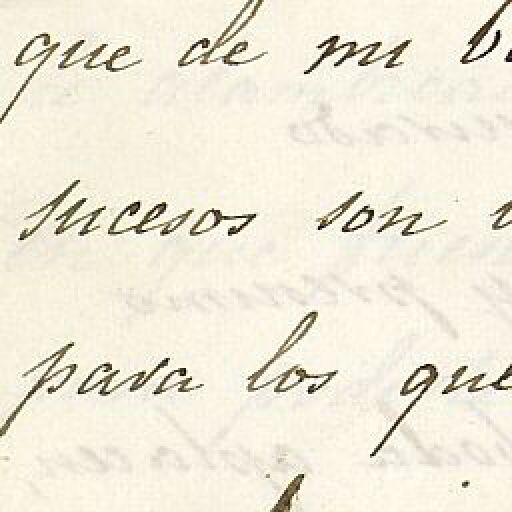 que de mi
sucesos son
para los que